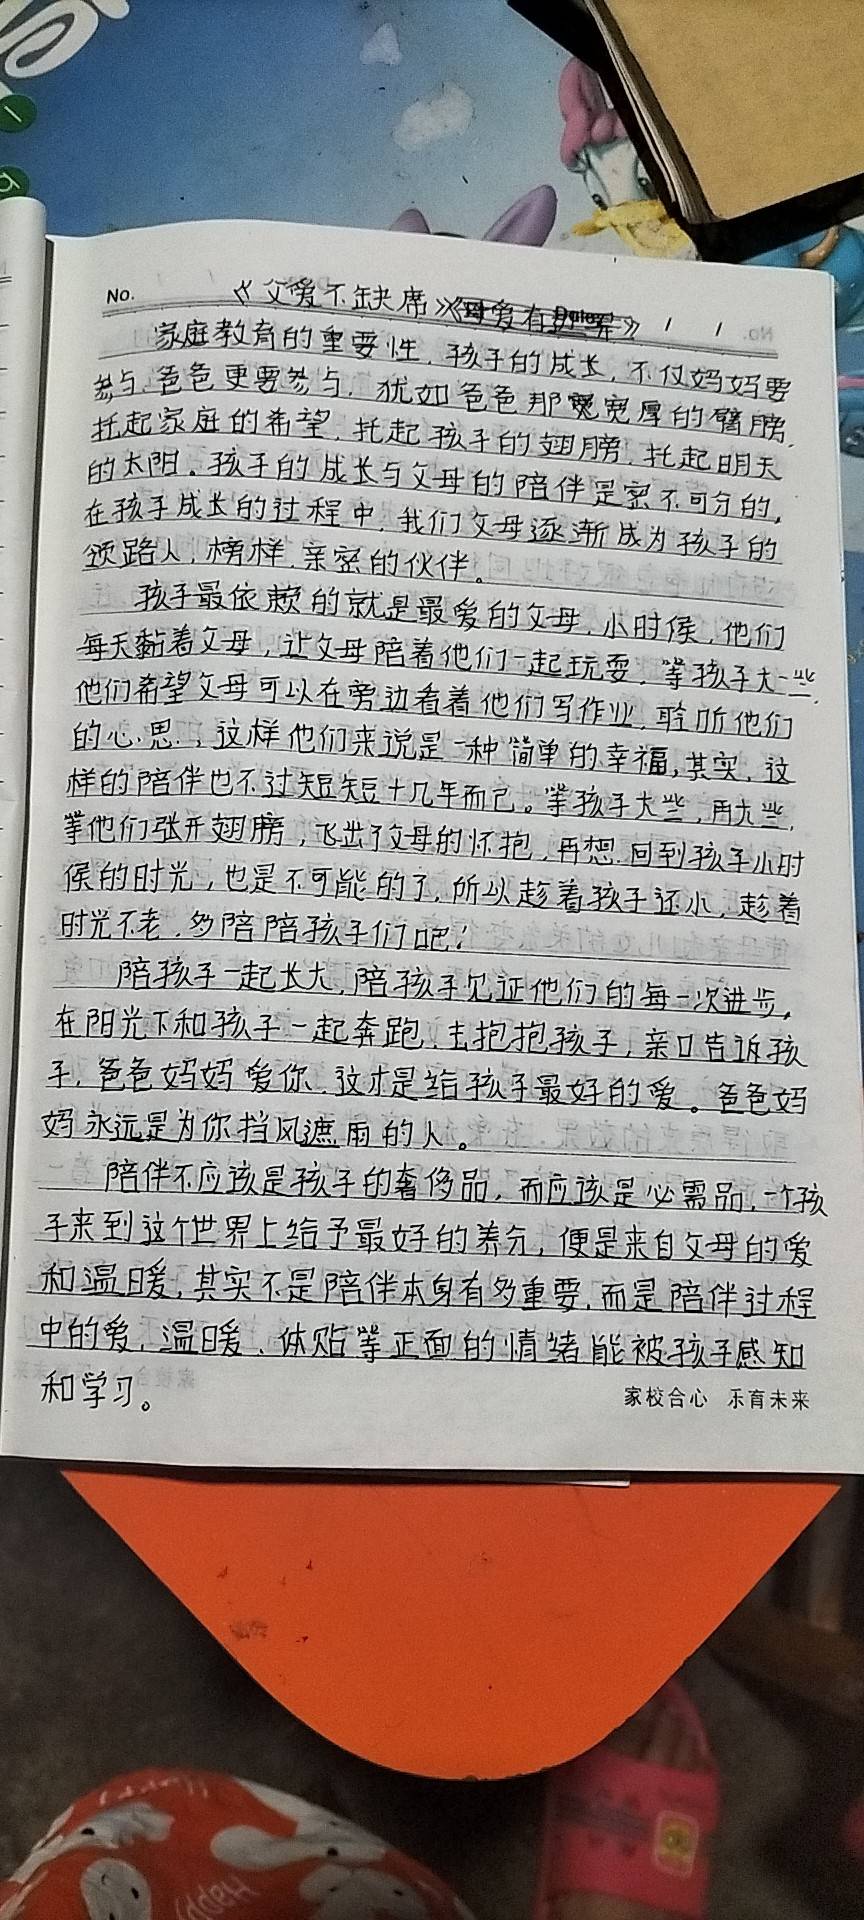 No.
《父爱不缺席》《母爱有边界》
家庭教育的重要性，孩子的成长，不仅妈妈要
参与，爸爸更要参与，犹如爸爸那宽宽厚的臂膀，
托起家庭的希望，托起孩子的翅膀，托起明天
的太阳。孩子的成长与父母的陪伴是密不可分的，
在孩子成长的过程中，我们父母逐渐成为孩子的
领路人，榜样，亲密的伙伴。
孩子最依赖的就是最爱的父母，小时侯，他们
每天黏着父母，让父母陪着他们一起玩耍，等孩子大一些，
他们希望父母可以在旁边看着他们写作业，聆听他们
的心思，这样他们来说是一种简单的幸福，其实，这
样的陪伴也不过短短十几年而已。等孩子大些，再大些，
等他们张开翅膀，飞出了父母的怀抱，再想回到孩子小时
侯的时光，也是不可能的了，所以趁着孩子还小，趁着
时光不老，多陪陪孩子们吧！
陪孩子一起长大，陪孩子见证他们的每一次进步，
在阳光下和孩子一起奔跑，去抱抱孩子，亲口告诉孩
子，爸爸妈妈爱你，这才是给孩子最好的爱。爸爸妈
妈永远是为你挡风遮雨的人。
陪伴不应该是孩子的奢侈品，而应该是必需品，一个孩
子来到这个世界上给予最好的养分，便是来自父母的爱
和温暖，其实不是陪伴本身有多重要，而是陪伴过程
中的爱，温暖、体贴等正面的情绪能被孩子感知
和学习。
家校合心 乐育未来